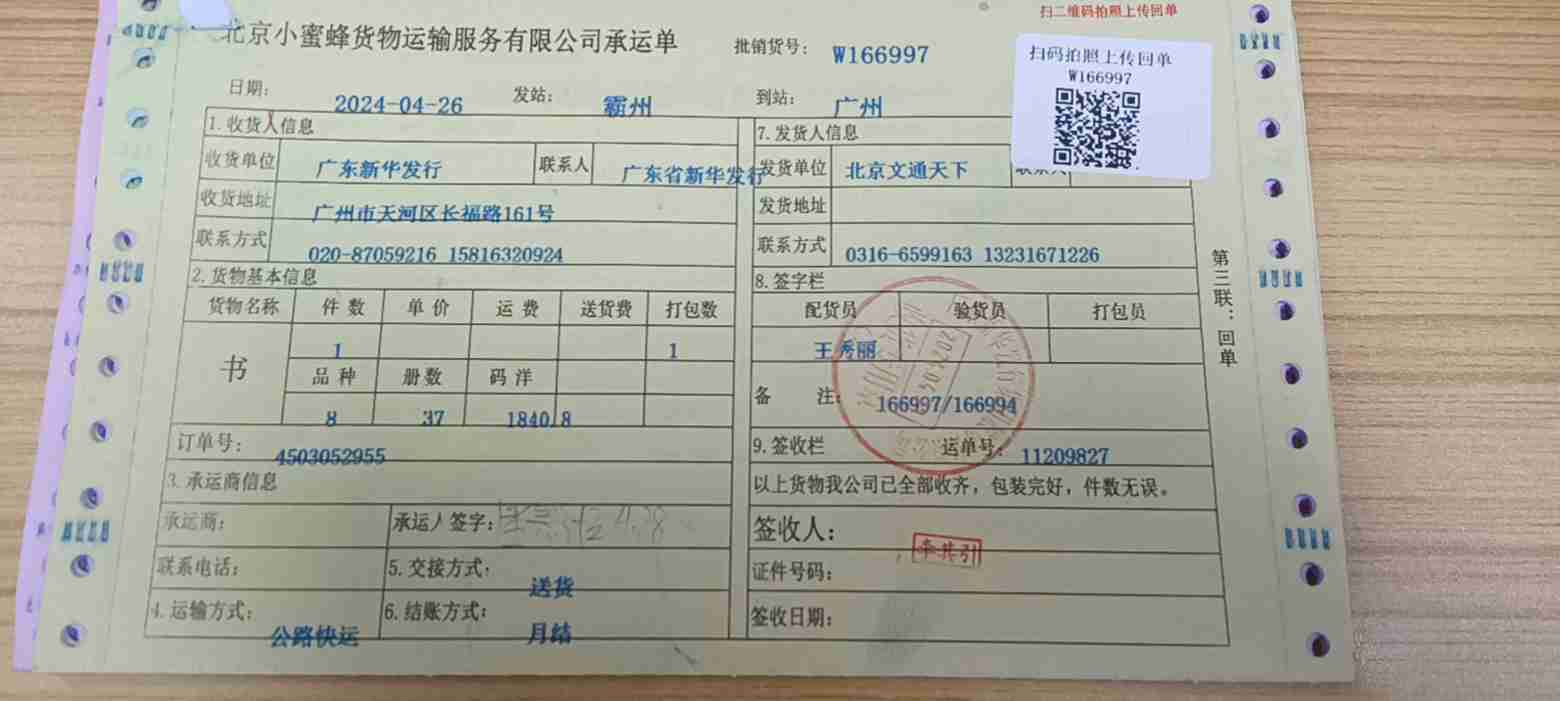 扫二维码拍照上传回单
北京小蜜蜂货物运输服务有限公司承运单
批销货号： W166997
扫码拍照上传回单
W166997
日期： 2024-04-26 发站： 霸州 到站： 广州
1.收货人信息 7.发货人信息
收货单位 广东新华发行 联系人 广东省新华发行 发货单位 北京文通天下
收货地址 广州市天河区长福路161号 发货地址
联系方式 020-87059216 15816320924 联系方式 0316-6599163 13231671226
2.货物基本信息 8.签字栏
货物名称 件数 单价 运费 送货费 打包数 配货员 验货员 打包员
书 1 1 王秀丽
品种 册数 码洋
8 37 1840.8
备注： 166997/166994
订单号： 4503052955
9.签收栏 运单号： 11209827
3.承运商信息
以上货物我公司已全部收齐，包装完好，件数无误。
承运商： 承运人签字：
签收人： 李共引
联系电话： 5.交接方式： 送货
证件号码：
4.运输方式： 公路快运 6.结账方式： 月结
签收日期：
第三联：回单